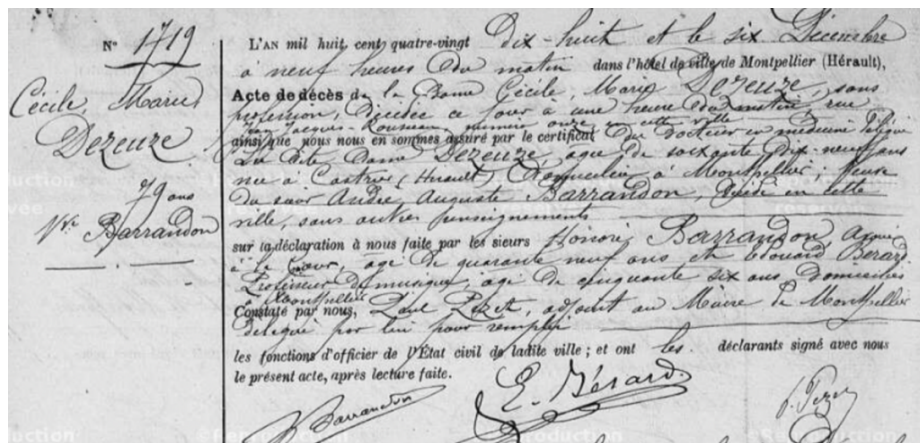 N° 1719
Cécile, Marie
Dezeuze
79 ans
Vve Barrandon
L'AN mil huit cent quatre-vingt dix-huit et le six Décembre
à neuf heures du matin dans l'hôtel de ville de Montpellier (Hérault),
Acte de décès de la Dame Cécile, Marie Dezeuze, sans
profession, décédée ce jour à une heure du matin, rue
Jean Jacques Rousseau, numéro onze en cette ville
ainsi que nous nous en sommes assuré par le certificat du docteur en médecine
La dite Dame Dezeuze, âgée de soixante dix-neuf ans
née à Castries (Hérault), Domiciliée à Montpellier, Veuve
du sieur André, Auguste Barrandon, décédé en cette
ville, sans autres renseignements
sur la déclaration à nous faite par les sieurs Honoré Barrandon,
à la Cour, âgé de quarante neuf ans et Edouard Bérard
Professeur de musique, âgé de cinquante six ans domiciliés
à Montpellier
Constaté par nous, Paul Pezet, adjoint au Maire de Montpellier
délégué par lui pour remplir
les fonctions d'officier de l'État civil de ladite ville ; et ont les déclarants signé avec nous
le présent acte, après lecture faite.
Barrandon
E. Bérard
P. Pezet